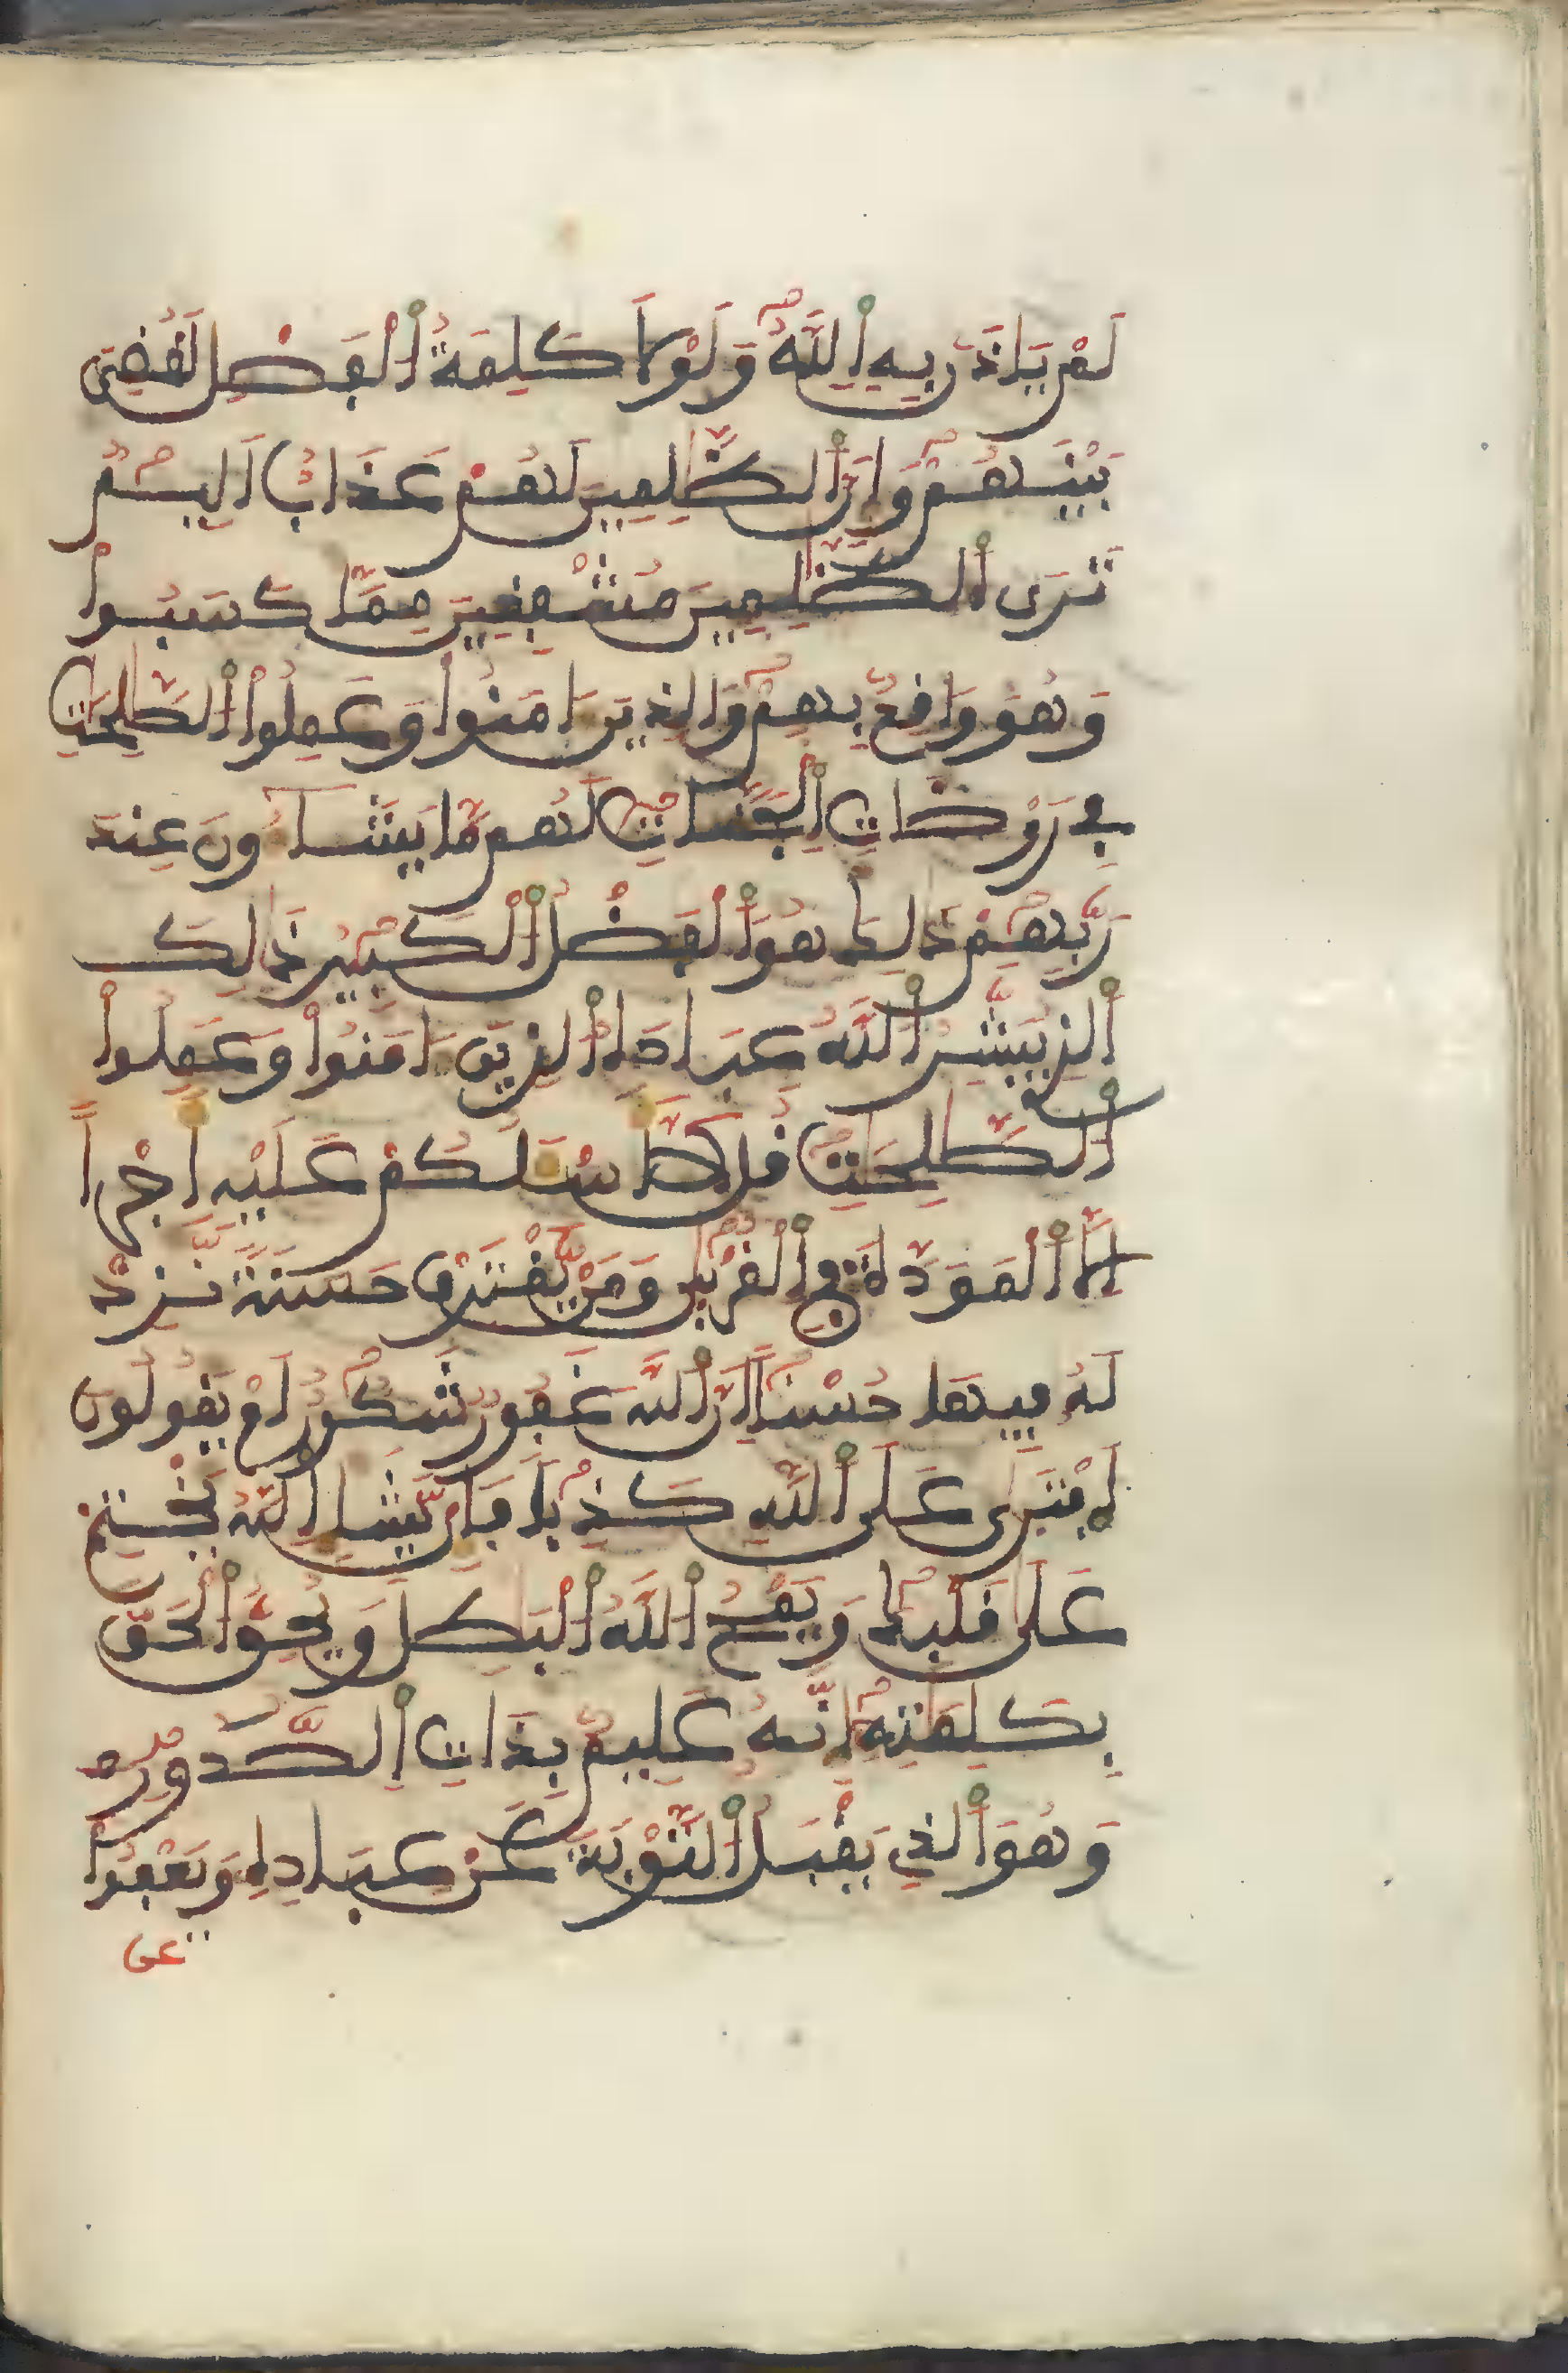 لَمْ يَاذَنۢ بِهِ اِ۬للَّهُ وَلَوْلَا كَلِمَةُ اُ۬لْفَصْلِ لَقُضِيَ
بَيْنَهُمْ وَإِنَّ اَ۬لظَّٰلِمِينَ لَهُمْ عَذَابٌ اَلِيمٌ
تَرَى اَ۬لظَّٰلِمِينَ مُشْفِقِينَ مِمَّا كَسَبُواْ
وَهُوَ وَاقِعٌۢ بِهِمْ وَالذِينَ ءَامَنُواْ وَعَمِلُواْ اُ۬لصَّٰلِحَٰتِ
فِے رَوْضَاتِ اِ۬لْجَنَّاتِ لَهُم مَّا يَشَآءُونَ عِندَ
رَبِّهِمْ ذَٰلِكَ هُوَ اَ۬لْفَضْلُ اُ۬لْكَبِيرُ ذَٰلِكَ
اَ۬لذِے يُبَشِّرُ اُ۬للَّهُ عِبَادَهُ اُ۬لذِينَ ءَامَنُواْ وَعَمِلُواْ
اُ۬لصَّٰلِحَٰتِ قُل لَّآ أَسْـَٔلُكُمْ عَلَيْهِ أَجْراً
اِلَّا اَ۬لْمَوَدَّةَ فِے اِ۬لْقُرْبَىٰ وَمَنْ يَّقْتَرِفْ حَسَنَةً نَّزِدْ
لَهُۥ فِيهَا حُسْناً اِنَّ اَ۬للَّهَ غَفُورٌ شَكُورٌ اَمْ يَقُولُونَ
اَ۪فْتَرَىٰ عَلَى اَ۬للَّهِ كَذِباً فَإِنْ يَّشَإِ اِ۬للَّهُ يَخْتِمْ
عَلَىٰ قَلْبِكَ وَيَمْحُ اُ۬للَّهُ اُ۬لْبَٰطِلَ وَيُحِقُّ اُ۬لْحَقَّ
بِكَلِمَٰتِهِۦٓ إِنَّهُۥ عَلِيمٌۢ بِذَاتِ اِ۬لصُّدُورِ
وَهُوَ اَ۬لذِے يَقْبَلُ اُ۬لتَّوْبَةَ عَنْ عِبَادِهِۦ وَيَعْفُواْ
عن